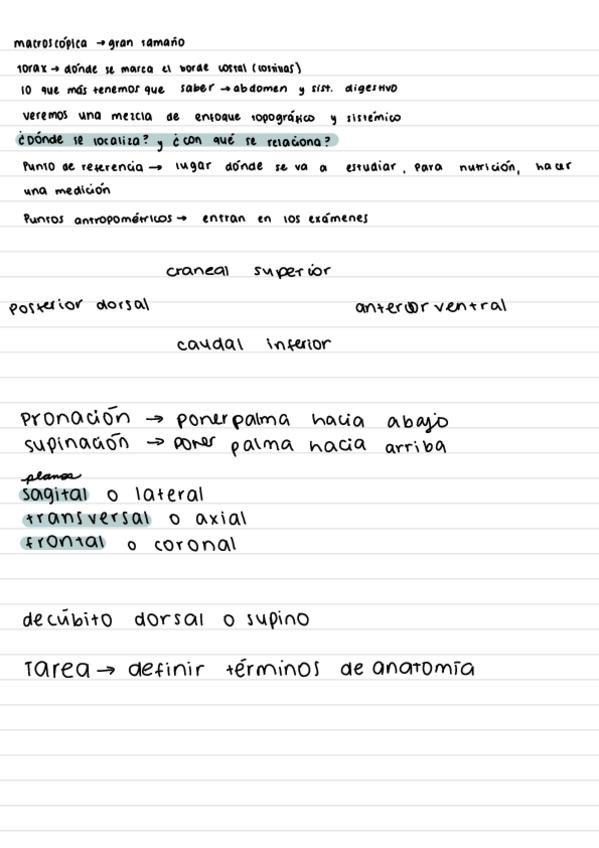 macroscópica → gran tamaño
torax → dónde se marca el borde costal (costillas)
lo que más tenemos que saber → abdomen y sist. digestivo
veremos una mezcla de enfoque topográfico y sistémico
¿Dónde se localiza? y ¿con qué se relaciona?
Punto de referencia → lugar dónde se va a estudiar, para nutrición, hacer
una medición
Puntos antropométricos → entran en los exámenes
craneal superior
posterior dorsal anterior ventral
caudal inferior
pronación → poner palma hacia abajo
supinación → poner palma hacia arriba
planos
sagital o lateral
transversal o axial
frontal o coronal
decúbito dorsal o supino
Tarea → definir términos de anatomía